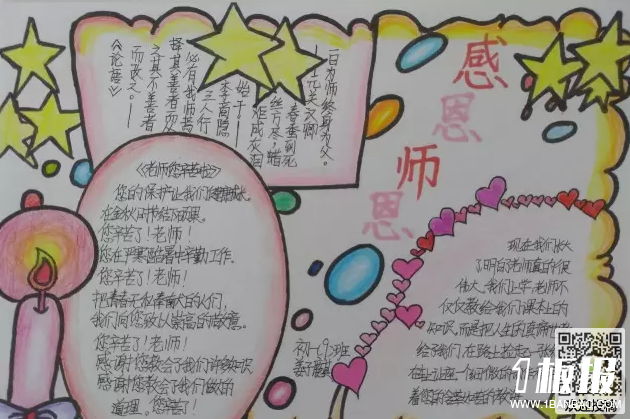 感恩师恩
一日为师，终身为父。
——关汉卿
春蚕到死
丝方尽，蜡
炬成灰泪
始干。——
李商隐
三人行
必有我师焉
择其善者而从
之其不善者
而改之。——
《论语》
《老师您辛苦啦》
您的保护让我们健康成长
您辛苦了！老师！
您在严寒酷暑中辛勤工作。
您辛苦了！老师！
把青春无私奉献大的人们，
我们向您致以崇高的敬意。
您辛苦了！老师！
感谢您教会了我们许多知识
感谢您教会了我们做人的
道理。您辛苦了！
初一(9)班
现在我们长大
了明白了老师真的很
伟大。我们上学老师不
仅仅教给我们课本上的
知识，而是把人生的
给了我们。在路上捡走一张
板报
WWW.1BANBAO.COM